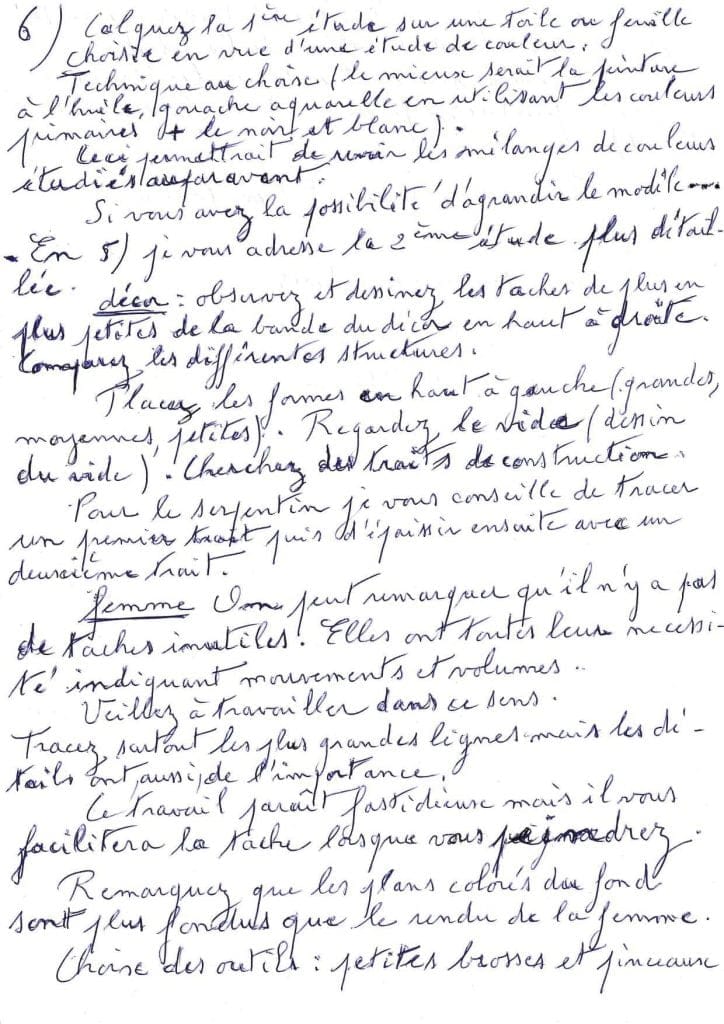 6) Calquez la 1ère étude sur une toile ou feuille
choisie en vue d'une étude de couleur.
Technique au choix (le mieux serait la peinture
à l'huile, gouache aquarelle en utilisant les couleurs
primaires + le noir et blanc).
Ceci permettrait de revoir les mélanges de couleurs
étudiés auparavant.
Si vous avez la possibilité d'agrandir le modèle...
- En 5) je vous adresse la 2ème étude plus détail-
lée.
décor : observez et dessinez les taches de plus en
plus petites de la bande du décor en haut à droite.
Comparez les différentes structures.
Placez les formes en haut à gauche (grandes,
moyennes, petites). Regardez le vide (dessin
du vide). Cherchez des traits de construction.
Pour le serpentin je vous conseille de tracer
un premier trait puis d'épaissir ensuite avec un
deuxième trait.
femme On peut remarquer qu'il n'y a pas
de taches inutiles. Elles ont toutes leur necessi-
té indiquant mouvements et volumes..
Veillez à travailler dans ce sens.
Tracez surtout les plus grandes lignes mais les dé-
tails ont, aussi, de l'importance.
Ce travail paraît fastidieux mais il vous
facilitera la tache lorsque vous peindrez.
Remarquez que les plans colorés du fond
sont plus fondus que le rendu de la femme.
Choix des outils : petites brosses et pinceaux